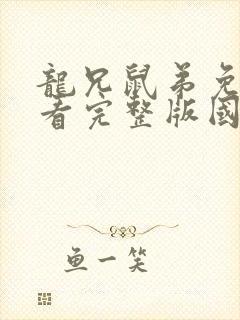 龍兄鼠弟免
看完整版國
鱼一笑